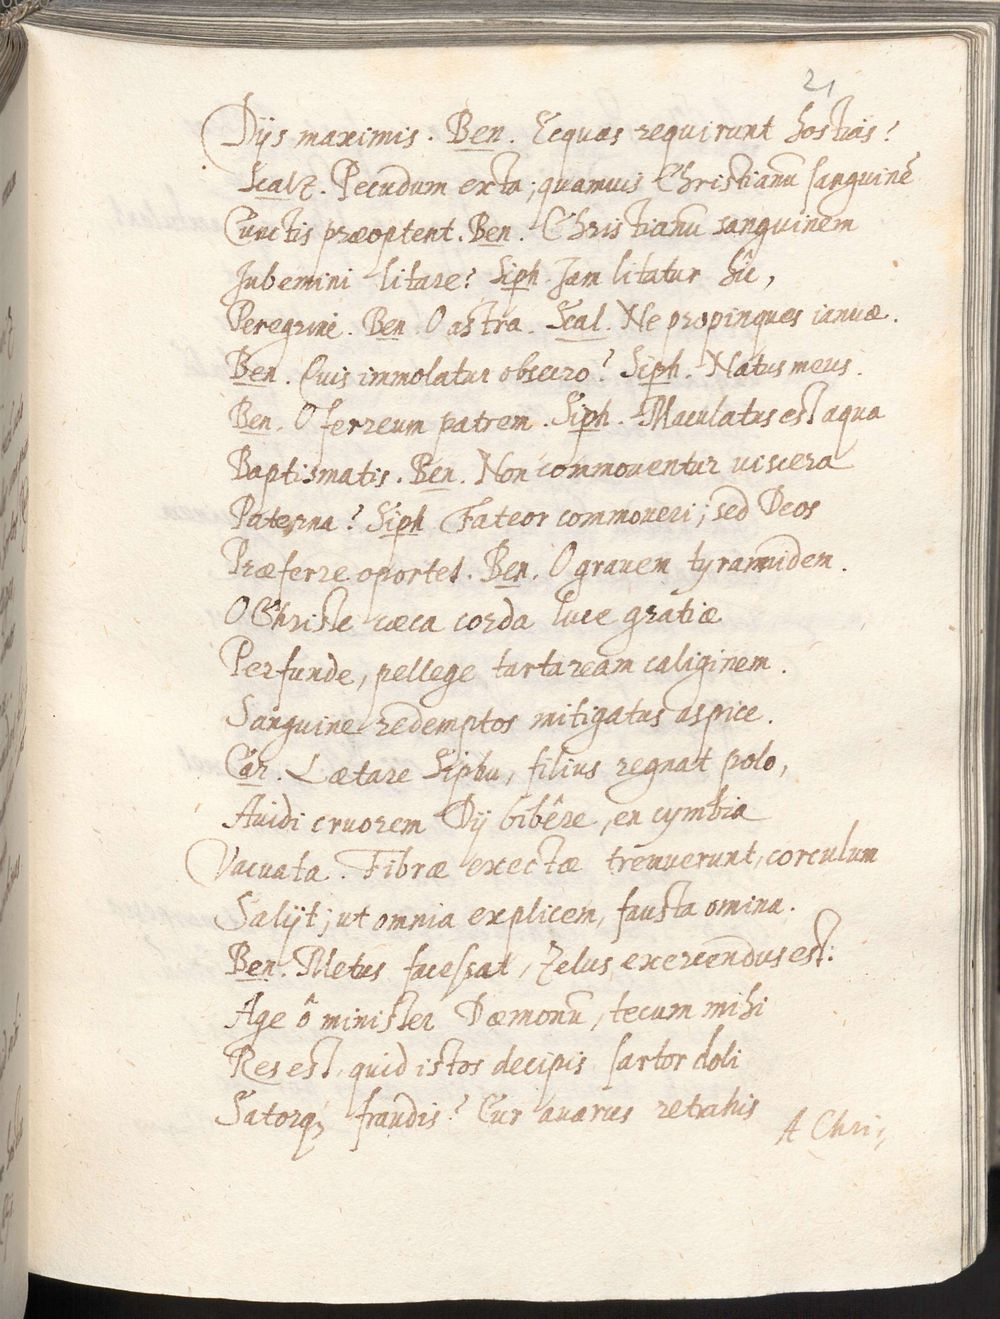 21
Dijs maximis. Ben. Ecquas requirunt hostias?
Scalz. Pecudum exta; quamuis Christianū sanguinē
Cunctis præoptent. Ben. Christianū sanguinem
Jubemini litare? Siph. Jam litatur hîc,
Peregrine. Ben. O astra. Scal. Ne propinques ianuæ.
Ben. Cuis immolatur obsecro? Siph. Natus meus.
Ben. O ferreum patrem. Siph. Maculatus est aqua
Baptismatis. Ben. Non commouentur uiscera
Paterna? Siph. Fateor commoueri; sed Deos
Præferre oportet. Ben. O grauem tyrannidem.
O Christe cæca corda luce gratiæ
Perfunde, pellege tartaream caliginem.
Sanguine redemptos mitigatus aspice.
Car. Lætare Siphu, filius regnat polo,
Auidi cruorem Dij bibêre, en cymbia
Vacuata. Fibræ exectæ tremuerunt, corculum
Salijt; ut omnia explicem, fausta omina.
Ben. Metus facessat, Zelus exercendus est:
Age ô minister Dæmonū, tecum mihi
Res est, quid istos decipis sartor doli
Satorq3 fraudis? Cur auarus retrahis
A Chris